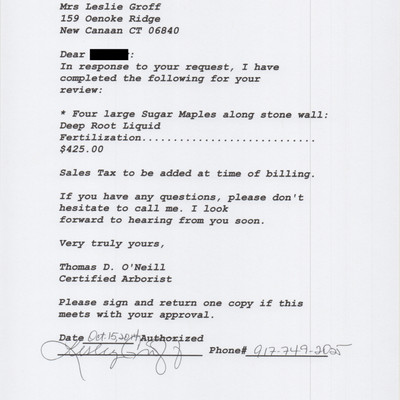 Mrs Leslie Groff
159 Oenoke Ridge
New Canaan CT 06840
Dear :
In response to your request, I have
completed the following for your
review:
* Four large Sugar Maples along stone wall:
Deep Root Liquid
Fertilization...........................
$425.00
Sales Tax to be added at time of billing.
If you have any questions, please don't
hesitate to call me. I look
forward to hearing from you soon.
Very truly yours,
Thomas D. O'Neill
Certified Arborist
Please sign and return one copy if this
meets with your approval.
Date Oct. 15, 2014 Authorized
Phone# 917-749-2025